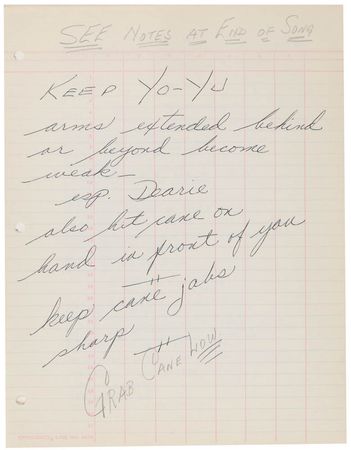 SEE NOTES AT END OF SONG
KEEP YO-YU
arms extended behind
or beyond become
weak—
esp. Dearie
also hit cane on
hand in front of you
keep cane jabs
sharp
GRAB CANE LOW